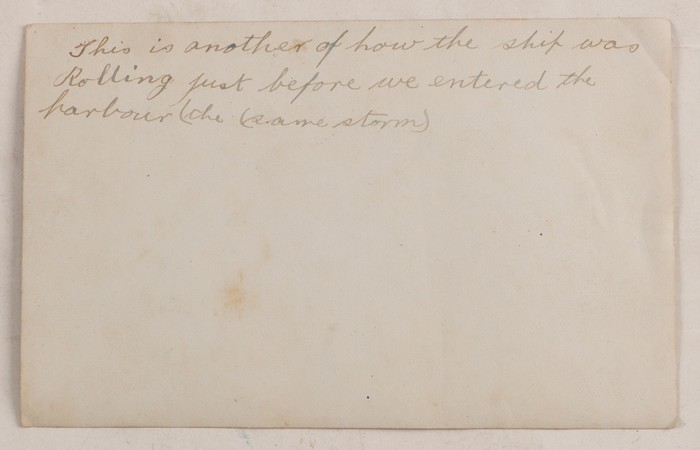 This is another of how the ship was
Rolling just before we entered the
harbour (the (same storm)